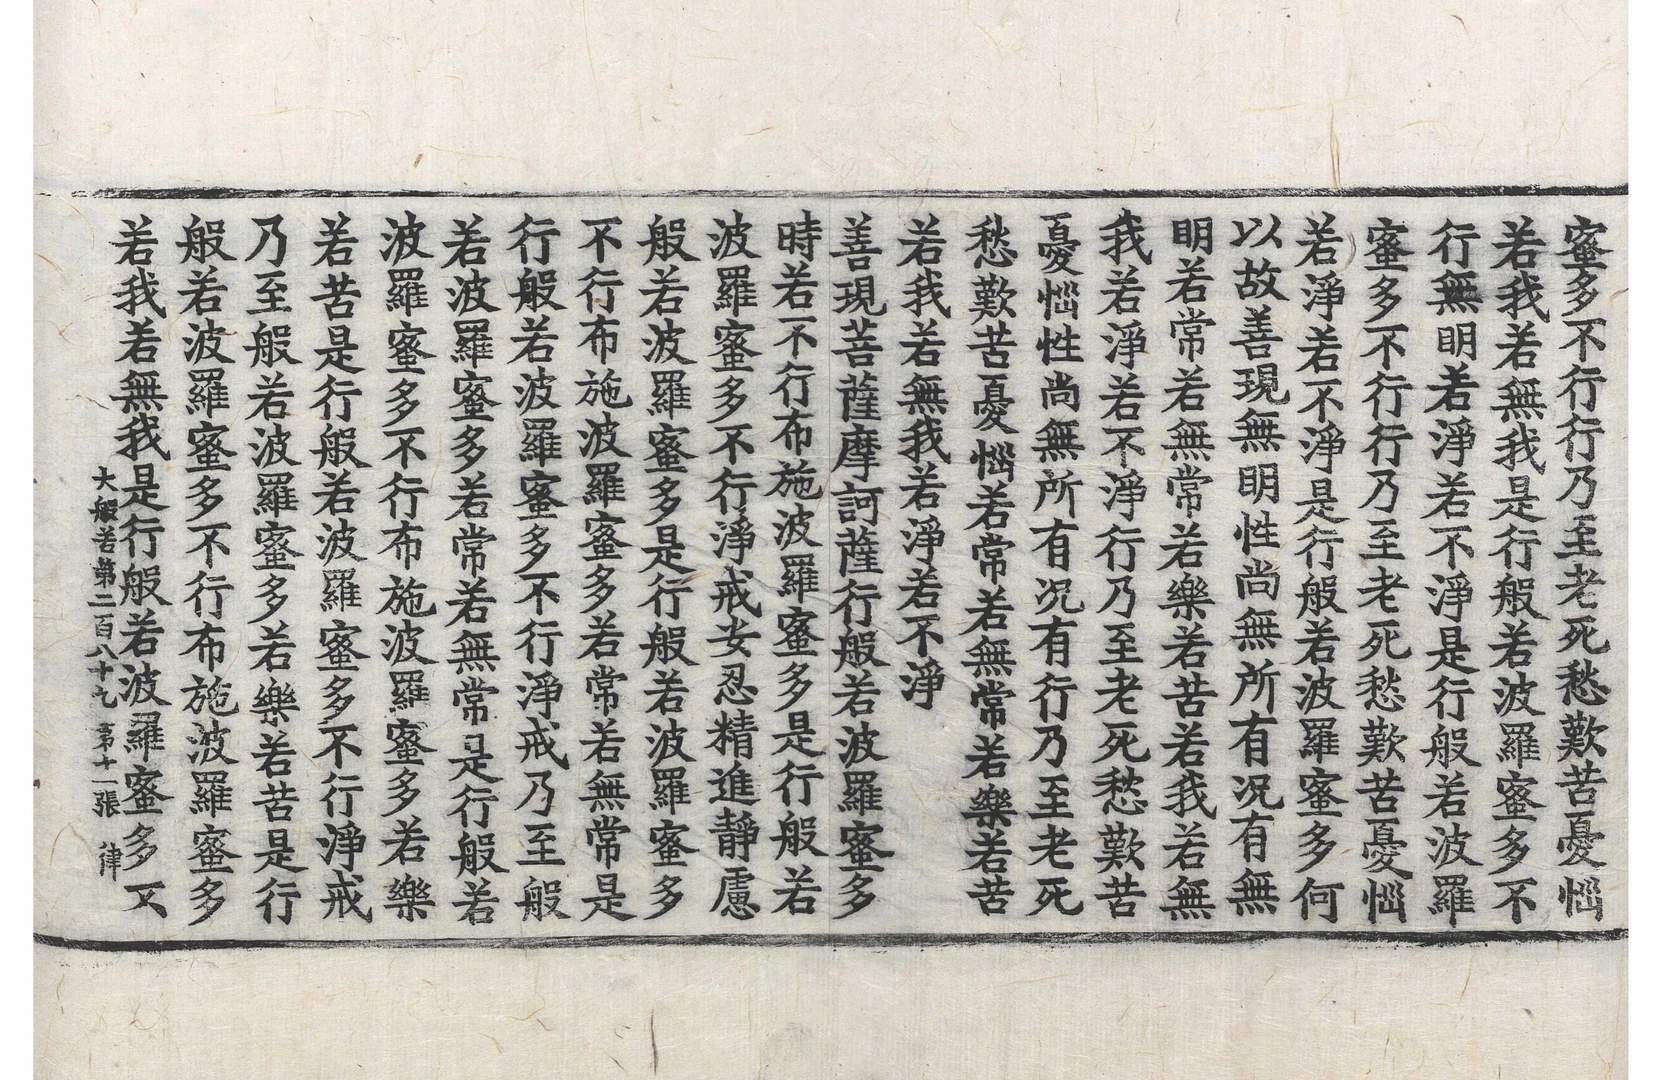 蜜多不行行乃至老死愁歎苦憂惱
若我若無我是行般若波羅蜜多不
行無明若淨若不淨是行般若波羅
蜜多不行行乃至老死愁歎苦憂惱
若淨若不淨是行般若波羅蜜多何
以故善現無明性尚無所有况有無
明若常若無常若樂若苦若我若無
我若淨若不淨行乃至老死愁歎苦
憂惱性尚無所有况有行乃至老死
愁歎苦憂惱若常若無常若樂若苦
若我若無我若淨若不淨
善現菩薩摩訶薩行般若波羅蜜多
時若不行布施波羅蜜多是行般若
波羅蜜多不行淨戒安忍精進靜慮
般若波羅蜜多是行般若波羅蜜多
不行布施波羅蜜多若常若無常是
行般若波羅蜜多不行淨戒乃至般
若波羅蜜多若常若無常是行般若
波羅蜜多不行布施波羅蜜多若樂
若苦是行般若波羅蜜多不行淨戒
乃至般若波羅蜜多若樂若苦是行
般若波羅蜜多不行布施波羅蜜多
若我若無我是行般若波羅蜜多不
大般若第二百八十九 第十一張 律